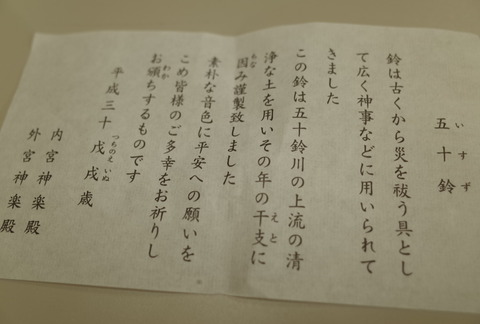 五十鈴
いすず
鈴は古くから災を祓う具とし
て広く神事などに用いられて
きました
この鈴は五十鈴川の上流の清
浄な土を用いその年の干支に
えと
因み謹製致しました
ちな
素朴な音色に平安への願いを
こめ皆様のご多幸をお祈りし
お頒ちするものです
わか
平成三十 戊戌歳
つちのえ いぬ
内宮神楽殿
外宮神楽殿